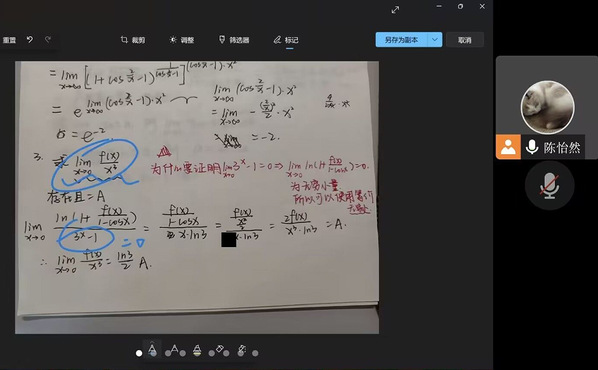 重置
裁剪
调整
筛选器
标记
另存为副本
取消
= lim x→∞ [(1+cos 2/x -1)^(1/(cos 2/x -1))]^(cos 2/x -1)·x²
= e^ lim x→∞ (cos 2/x -1)·x²
lim x→∞ (cos 2/x -1)·x²
= lim x→∞ - ·x²
= -2.
= e^-2.
3. 求 lim x→0 f(x)/x³
为什么要证明 lim x→0 3^x -1=0 ⇒ lim x→0 ln(1+ f(x)/(1-cosx))=0.
为无穷小量
所以可以使用等价
存在且=A
lim x→0 ln(1+ f(x)/(1-cosx)) / (3^x -1) = (f(x)/(1-cosx)) / (x·ln3) = = 2f(x)/(x³·ln3) = A.
=0
∴ lim x→0 f(x)/x³ = ln3/2 A.
陈怡然